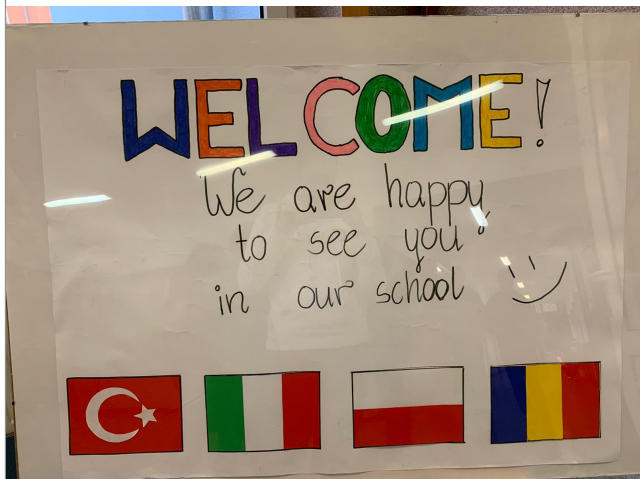 WELCOME!
We are happy
to see you
in our school